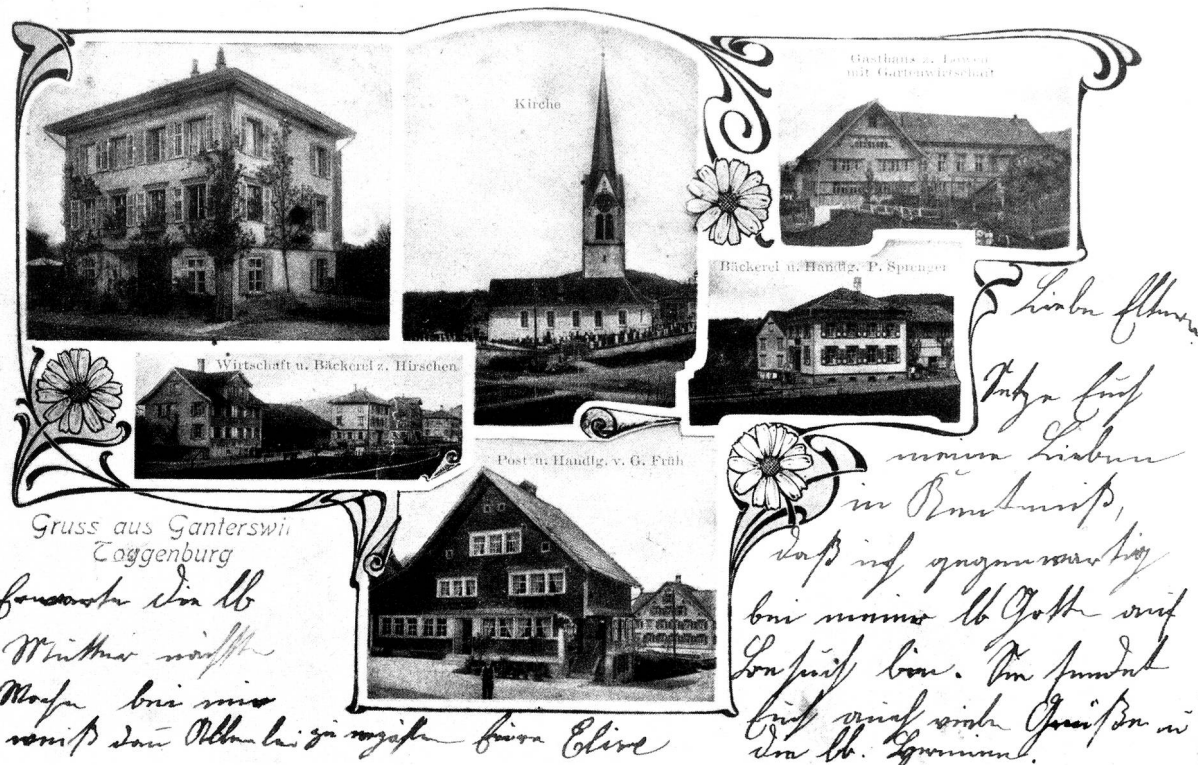 Kirche
Gasthaus z. Löwen
mit Gartenwirtschaft
Bäckerei u. Handlg. P. Sprenger
Wirtschaft u. Bäckerei z. Hirschen
Post u. Handlg. v. G. Früh
Gruss aus Ganterswil
Toggenburg
Liebe Eltern
Setze Euch
meine Lieben
in Kentniß,
daß ich gegenwärtig
bei meiner lb Gotte auf
Besuch bin. Sie sendet
Euch auch viele Grüße u
die lb. Hermine.
Erwarte die lb
Mutter nächste
Woche bei mir
weiß dan Allerlei zu erzählen Eure Elise